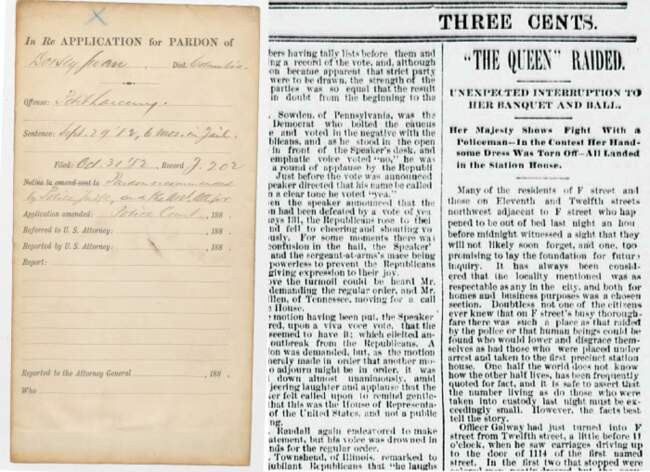 In Re APPLICATION for PARDON of
Dorsey Jean Dist. Columbia
Offense: Petit Larceny
Sentence: Sept. 29 '82, 6 mos. in Jail
Filed: Oct. 20 '82, Record J. 202
Notice is amend sent to Pardon recommended
by Police Judge, and
Application amended: Police Court, 188 .
Referred to U. S. Attorney: , 188 .
Reported by U. S. Attorney: , 188 .
Report:
Reported to the Attorney General , 188 .
Who
bers having tally lists before them and
ng a record of the vote, and, although
on became apparent that strict party
were to be drawn, the strength of the
parties was so equal that the result
in doubt from the beginning to the
. Sowden, of Pennsylvania, was the
Democrat who bolted the caucus
e and voted in the negative with the
blicans, and as he stood in the open
in front of the Speaker's desk, and
emphatic voice voted "no," he wa
a round of applause by the Republi
Just before the vote was announced
peaker directed that his name be called
n a clear tone he voted "yea."
en the speaker announced that the
on had been defeated by a vote of yea
ays 131, the Republicans rose to thei
nd fell to cheering and shouting vo
usly. For some moments there wa
confusion in the hall, the Speaker'
and the sergeant-at-arm's mace being
powerless to prevent the Republicans
giving expression to their joy.
ove the turmoil could be heard Mr.
demanding the regular order, and Mr.
llen, of Tennessee, moving for a call
e House.
motion having been put, the Speaker
red, upon a viva voce vote, that the
seemed to have it; which elicited an
outbreak from the Republicans. A
ion was demanded, but, as the motion
merely made in order that another mo
o adjourn might be in order, it was
down almost unanimously, amid
jeering laughter and applause that the
er felt called upon to remind gentle-
that this was the House of Representa-
of the United States, and not a public
ng.
. Randall again endeavored to make
atement, but his voice was drowned in
nds for the regular order.
. Townshend, of Illinois, remarked to
jubilant Republicans that "he laughs
THREE CENTS.
"THE QUEEN" RAIDED.
UNEXPECTED INTERRUPTION TO
HER BANQUET AND BALL.
Her Majesty Shows Fight With a
Policeman—In the Contest Her Hand-
some Dress Was Torn Off—All Landed
in the Station House.
Many of the residents of F street and
those on Eleventh and Twelfth streets
northwest adjacent to F street who hap
pened to be out of bed last night an hou
before midnight witnessed a sight that they
will not likely soon forget, and one, too
promising to lay the foundation for future
inquiry. It has always been consid-
ered that the locality mentioned was as
respectable as any in the city, and both for
homes and business purposes was a chosen
section. Doubtless not one of the citizens
ever knew that on F street's busy thorough-
fare there was such a place as that raided
by the police or that human beings could be
found who would lower and disgrace them-
selves as had those who were placed under
arrest and taken to the first precinct station
house. One half the world does not know
how the other half lives, has been frequently
quoted for fact, and it is safe to assert that
the number living as do those who were
taken into custody last night must be ex-
ceedingly small. However, the facts best
tell the story.
Officer Galway had just turned into F
street from Twelfth street, a little before 11
o'clock, when he saw carriages driving up
to the door of 1114 of the first named
street. In the first two that stopped were